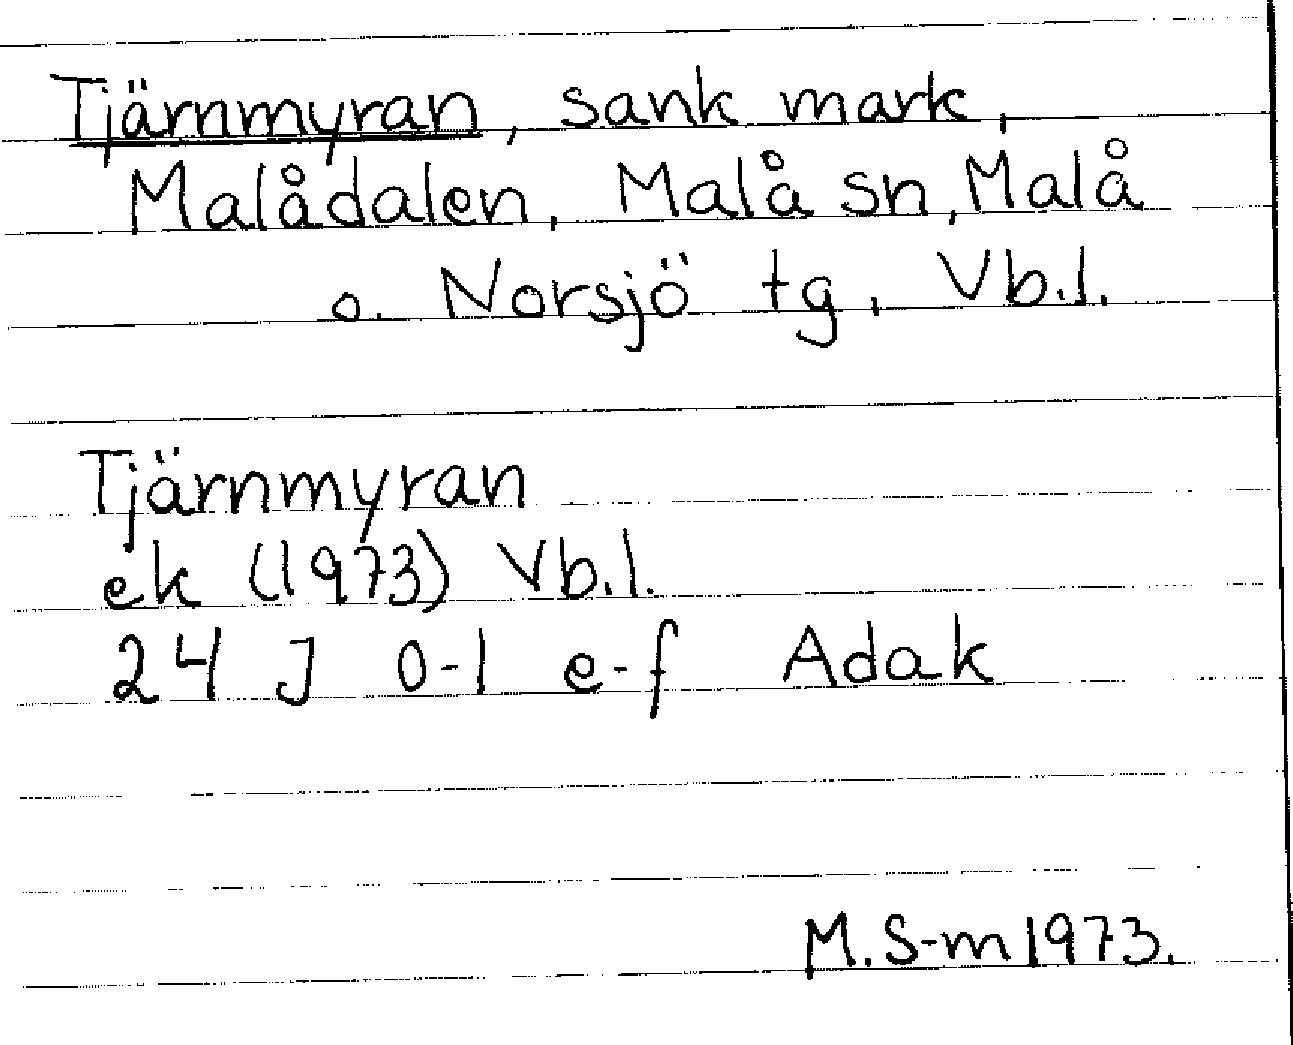 Tjärnmyran, sank mark,
Malådalen, Malå sn, Malå
o. Norsjö tg, Vb.l.
Tjärnmyran
ek (1973) Vb.l.
24 J 0-1 e-f Adak
M.S-m 1973.